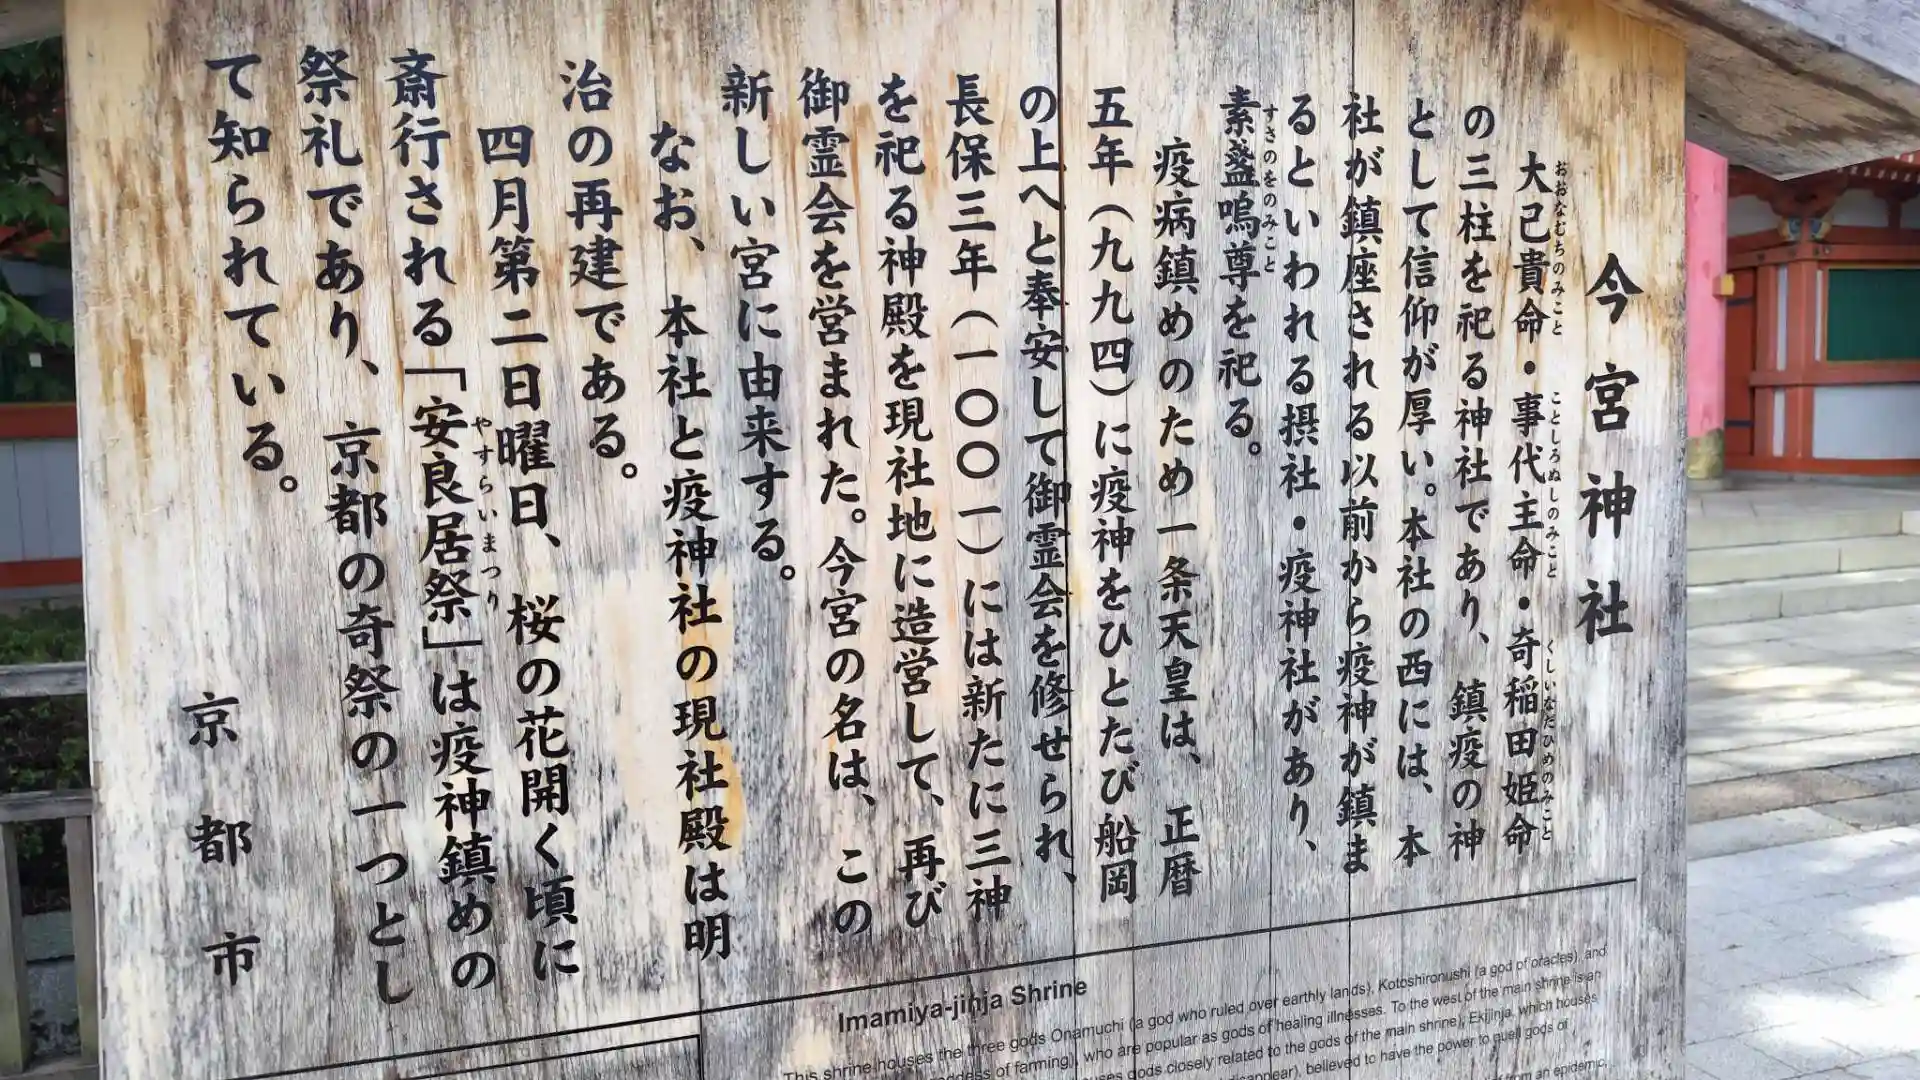 今宮神社
大己貴命・事代主命・奇稲田姫命
おおなむちのみこと ことしろぬしのみこと くしいなだひめのみこと
の三柱を祀る神社であり、鎮疫の神
として信仰が厚い。本社の西には、本
社が鎮座される以前から疫神が鎮ま
るといわれる摂社・疫神社があり、
素盞嗚尊を祀る。
すさのをのみこと
疫病鎮めのため一条天皇は、正暦
五年(九九四)に疫神をひとたび船岡
の上へと奉安して御霊会を修せられ、
長保三年(一〇〇一)には新たに三神
を祀る神殿を現社地に造営して、再び
御霊会を営まれた。今宮の名は、この
新しい宮に由来する。
なお、本社と疫神社の現社殿は明
治の再建である。
四月第二日曜日、桜の花開く頃に
斎行される「安良居祭」は疫神鎮めの
やすらいまつり
祭礼であり、京都の奇祭の一つとし
て知られている。
京都市
Imamiya-jinja Shrine
This shrine houses the three gods Onamuchi (a god who ruled over earthly lands), Kotoshironushi (a god of oracles), and
of farming), who are popular as gods of healing illnesses. To the west of the main shrine is an
gods closely related to the gods of the main shrine), Ekijinja, which houses
believed to have the power to quell gods of
from an epidemic,